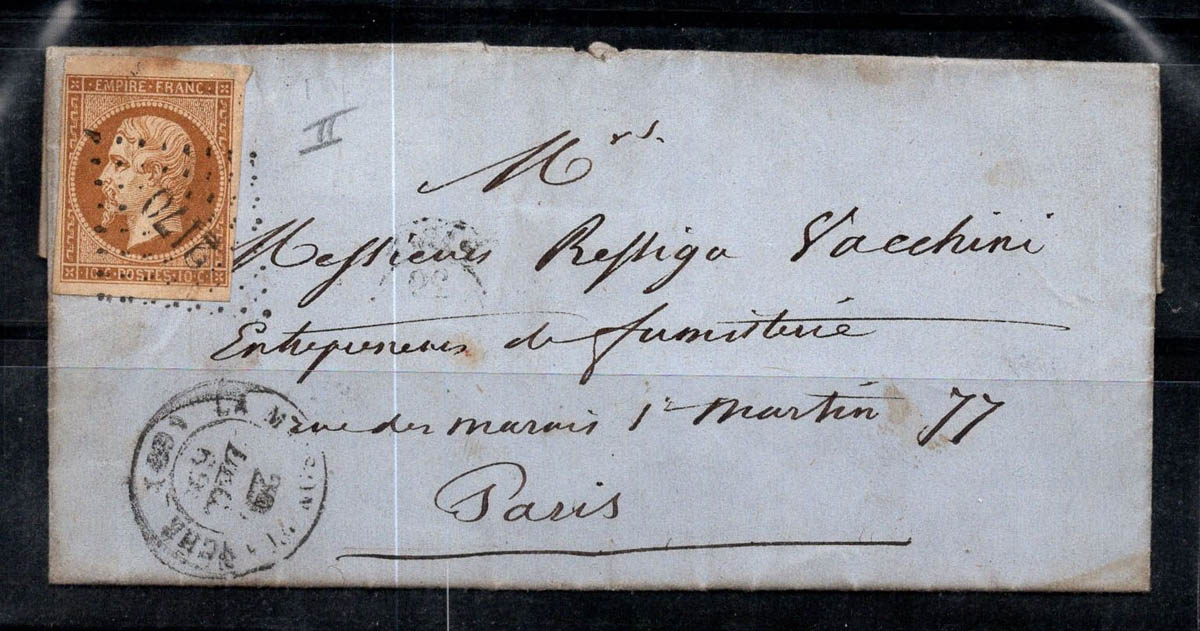 EMPIRE FRANC
10 C POSTES 10 C
2170
II
Mrs.
Messieurs Ressiga Vacchini
Entrepreneurs de fumisterie
rue des marais St Martin 77
Paris
LA M